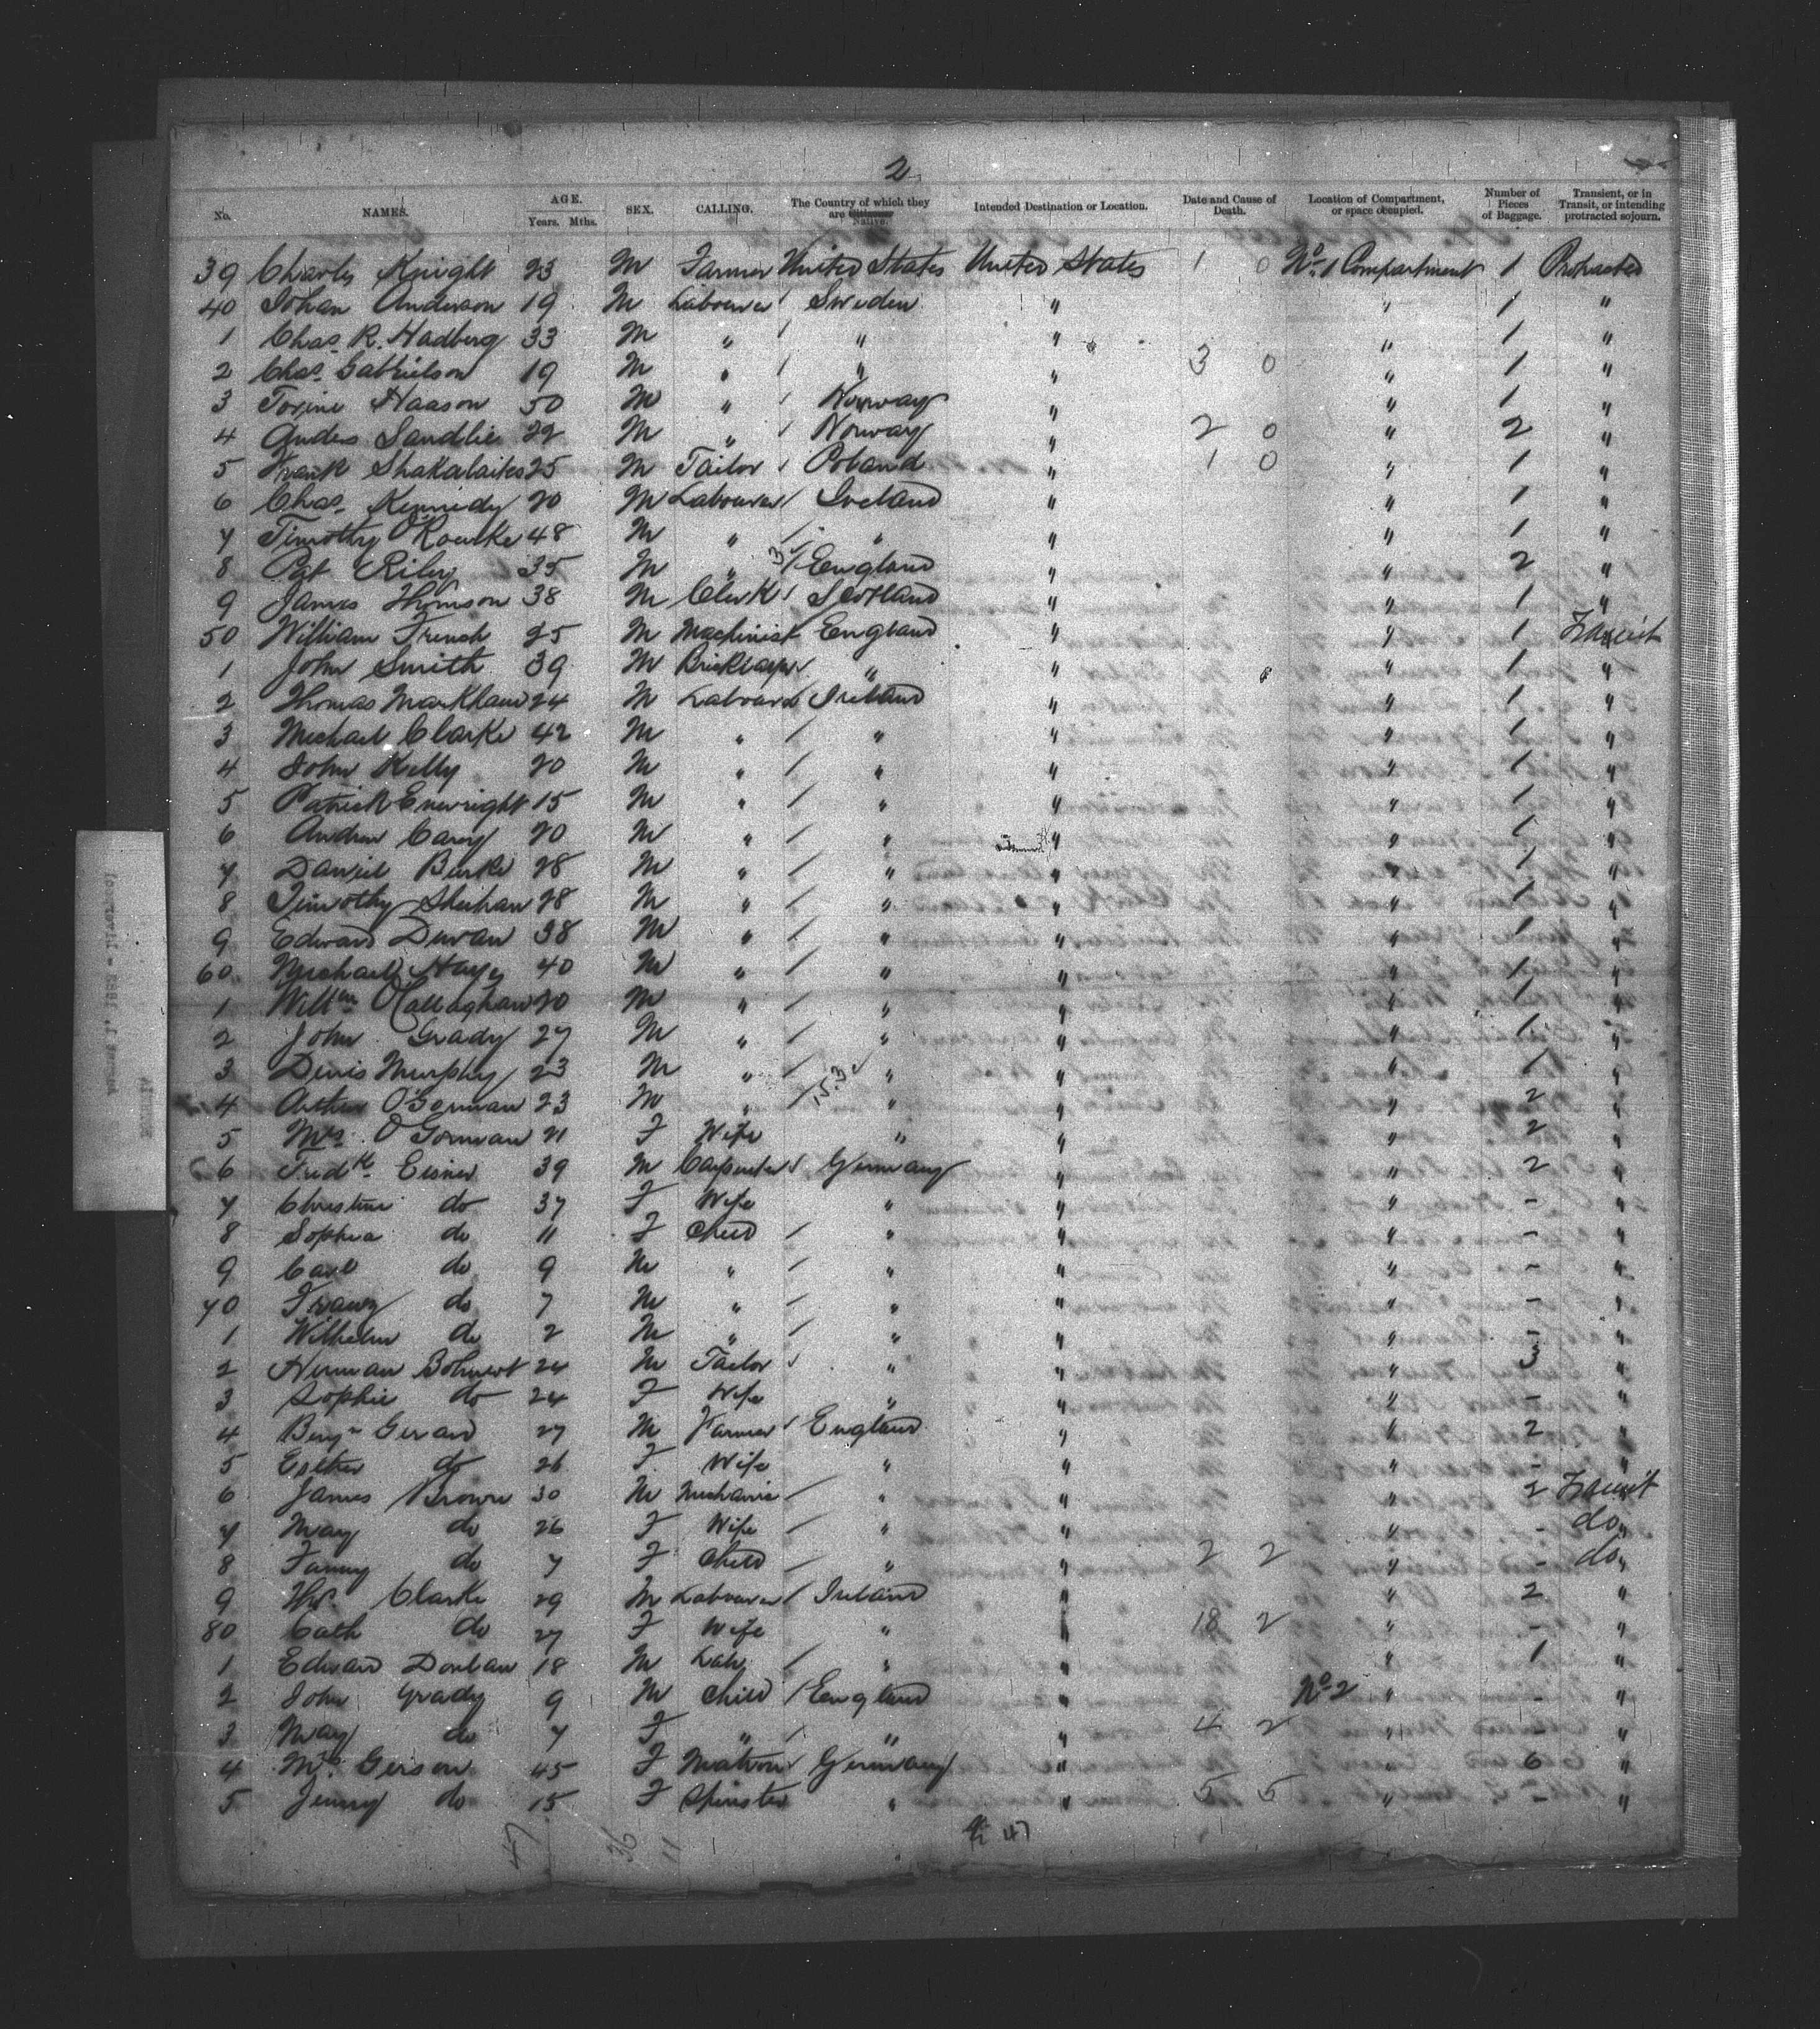 2
No. NAMES. AGE. Years. Mths. SEX. CALLING. The Country of which they are Citizens Native. Intended Destination or Location. Date and Cause of Death. Location of Compartment, or space occupied. Number of Pieces of Baggage. Transient, or in Transit, or intending protracted sojourn.
39 Charles Knight 23 M Farmer United States United States 1 0 No. 1 Compartment 1 Protracted
40 Johan Anderson 19 M Labourer / Sweden " " 1 "
1 Chas. R. Hadberg 33 M " / " " " 1 "
2 Chas. Gabrielson 19 M " / " " 3 0 " 1 "
3 Torine Haason 50 M " / Norway " " 1 "
4 Andes Sandlie 22 M " / Norway " 2 0 " 2 "
5 Frank Shakalaites 25 M Tailor / Poland " 1 0 " 1 "
6 Chas. Kennedy 20 M Labourer / Ireland " " 1 "
7 Timothy O'Rourke 48 M " / " " " 1 "
8 Pat Riley 35 M " 3 / England " " 2 "
9 James Thomson 38 M Clerk / Scotland " " 1 "
50 William French 25 M Machinist England " " 1 Transit
1 John Smith 39 M Bricklayer " " " 1 "
2 Thomas Markham 24 M Labourer Ireland " " 1 "
3 Michael Clarke 42 M " / " " " 1 "
4 John Kelly 20 M " / " " " 1 "
5 Patrick Enwright 15 M " / " " " 1 "
6 Andrew Carey 20 M " / " " " 1 "
7 Daniel Burke 28 M " / " " " 1 "
8 Timothy Sheehan 28 M " / " " " 1 "
9 Edward Duran 38 M " / " " " 1 "
60 Michael Hayes 40 M " / " " " 1 "
1 Willm O'Callaghan 20 M " / " " " 1 "
2 John Grady 27 M " / " " " 1 "
3 Denis Murphy 23 M " / " " " 1 "
4 Arthur O'Gorman 23 M " / 15.3 " " " 2 "
5 Mrs. O'Gorman 21 F Wife " " " 2 "
6 Fredk. Eisner 39 M Carpenter / Germany " " 2 "
7 Christine do 37 F Wife " " " - "
8 Sophia do 11 F Child / " " " - "
9 Carl do 9 M " / " " " - "
70 Franz do 7 M " / " " " - "
1 Wilhelm do 2 M " / " " " - "
2 Herman Bohnert 24 M Tailor / " " " 3 "
3 Sophie do 24 F Wife " " " - "
4 Benjn Gerard 27 M Farmer / England " " 2 "
5 Esther do 26 F Wife " " " - "
6 James Brown 30 M Mechanic / " " " 2 Transit
7 May do 26 F Wife / " " " - do
8 Fanny do 7 F Child / " " 2 2 " - do
9 Thos. Clarke 29 M Labourer / Ireland " " 2 "
80 Cath do 27 F Wife " " 18 2 " - "
1 Edward Donlan 18 M Lab / " " " 1 "
2 John Grady 9 M Child / England " No. 2 " - "
3 May do 7 F " / " " 4 2 " - "
4 Mrs. Gerson 45 F Matron / Germany " " 6 "
5 Jenny do 15 F Spinster " " 5 5 " - "
47 36 11 47